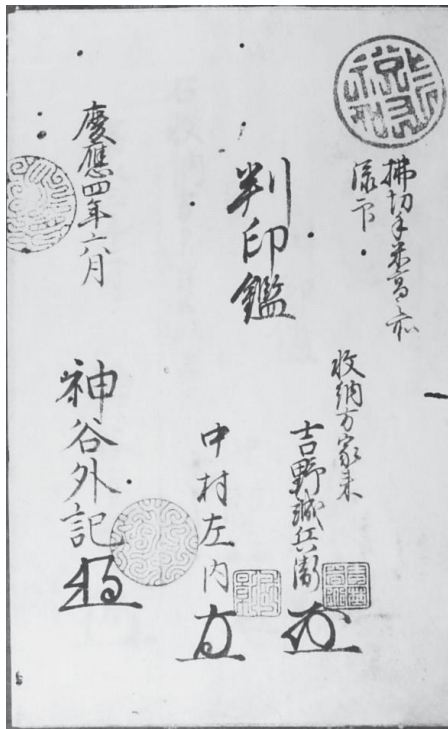 拂切手米高之記
添印
判印鑑
收納方家来
吉野誠兵衛
中村左内
慶應四年六月
神谷外記